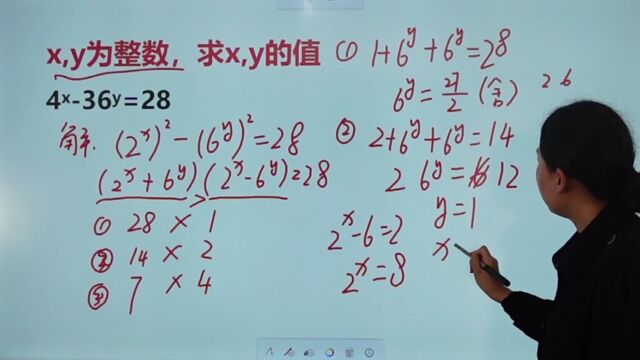 x,y为整数，求x,y的值
4ˣ-36ʸ=28
解: (2ˣ)²-(6ʸ)²=28
(2ˣ+6ʸ)(2ˣ-6ʸ)=28
① 28 × 1
② 14 × 2
③ 7 × 4
① 1+6ʸ+6ʸ=28
6ʸ=27/2 (舍)
② 2+6ʸ+6ʸ=14
2 6ʸ=12
y=1
2ˣ-6=2
2ˣ=8
x